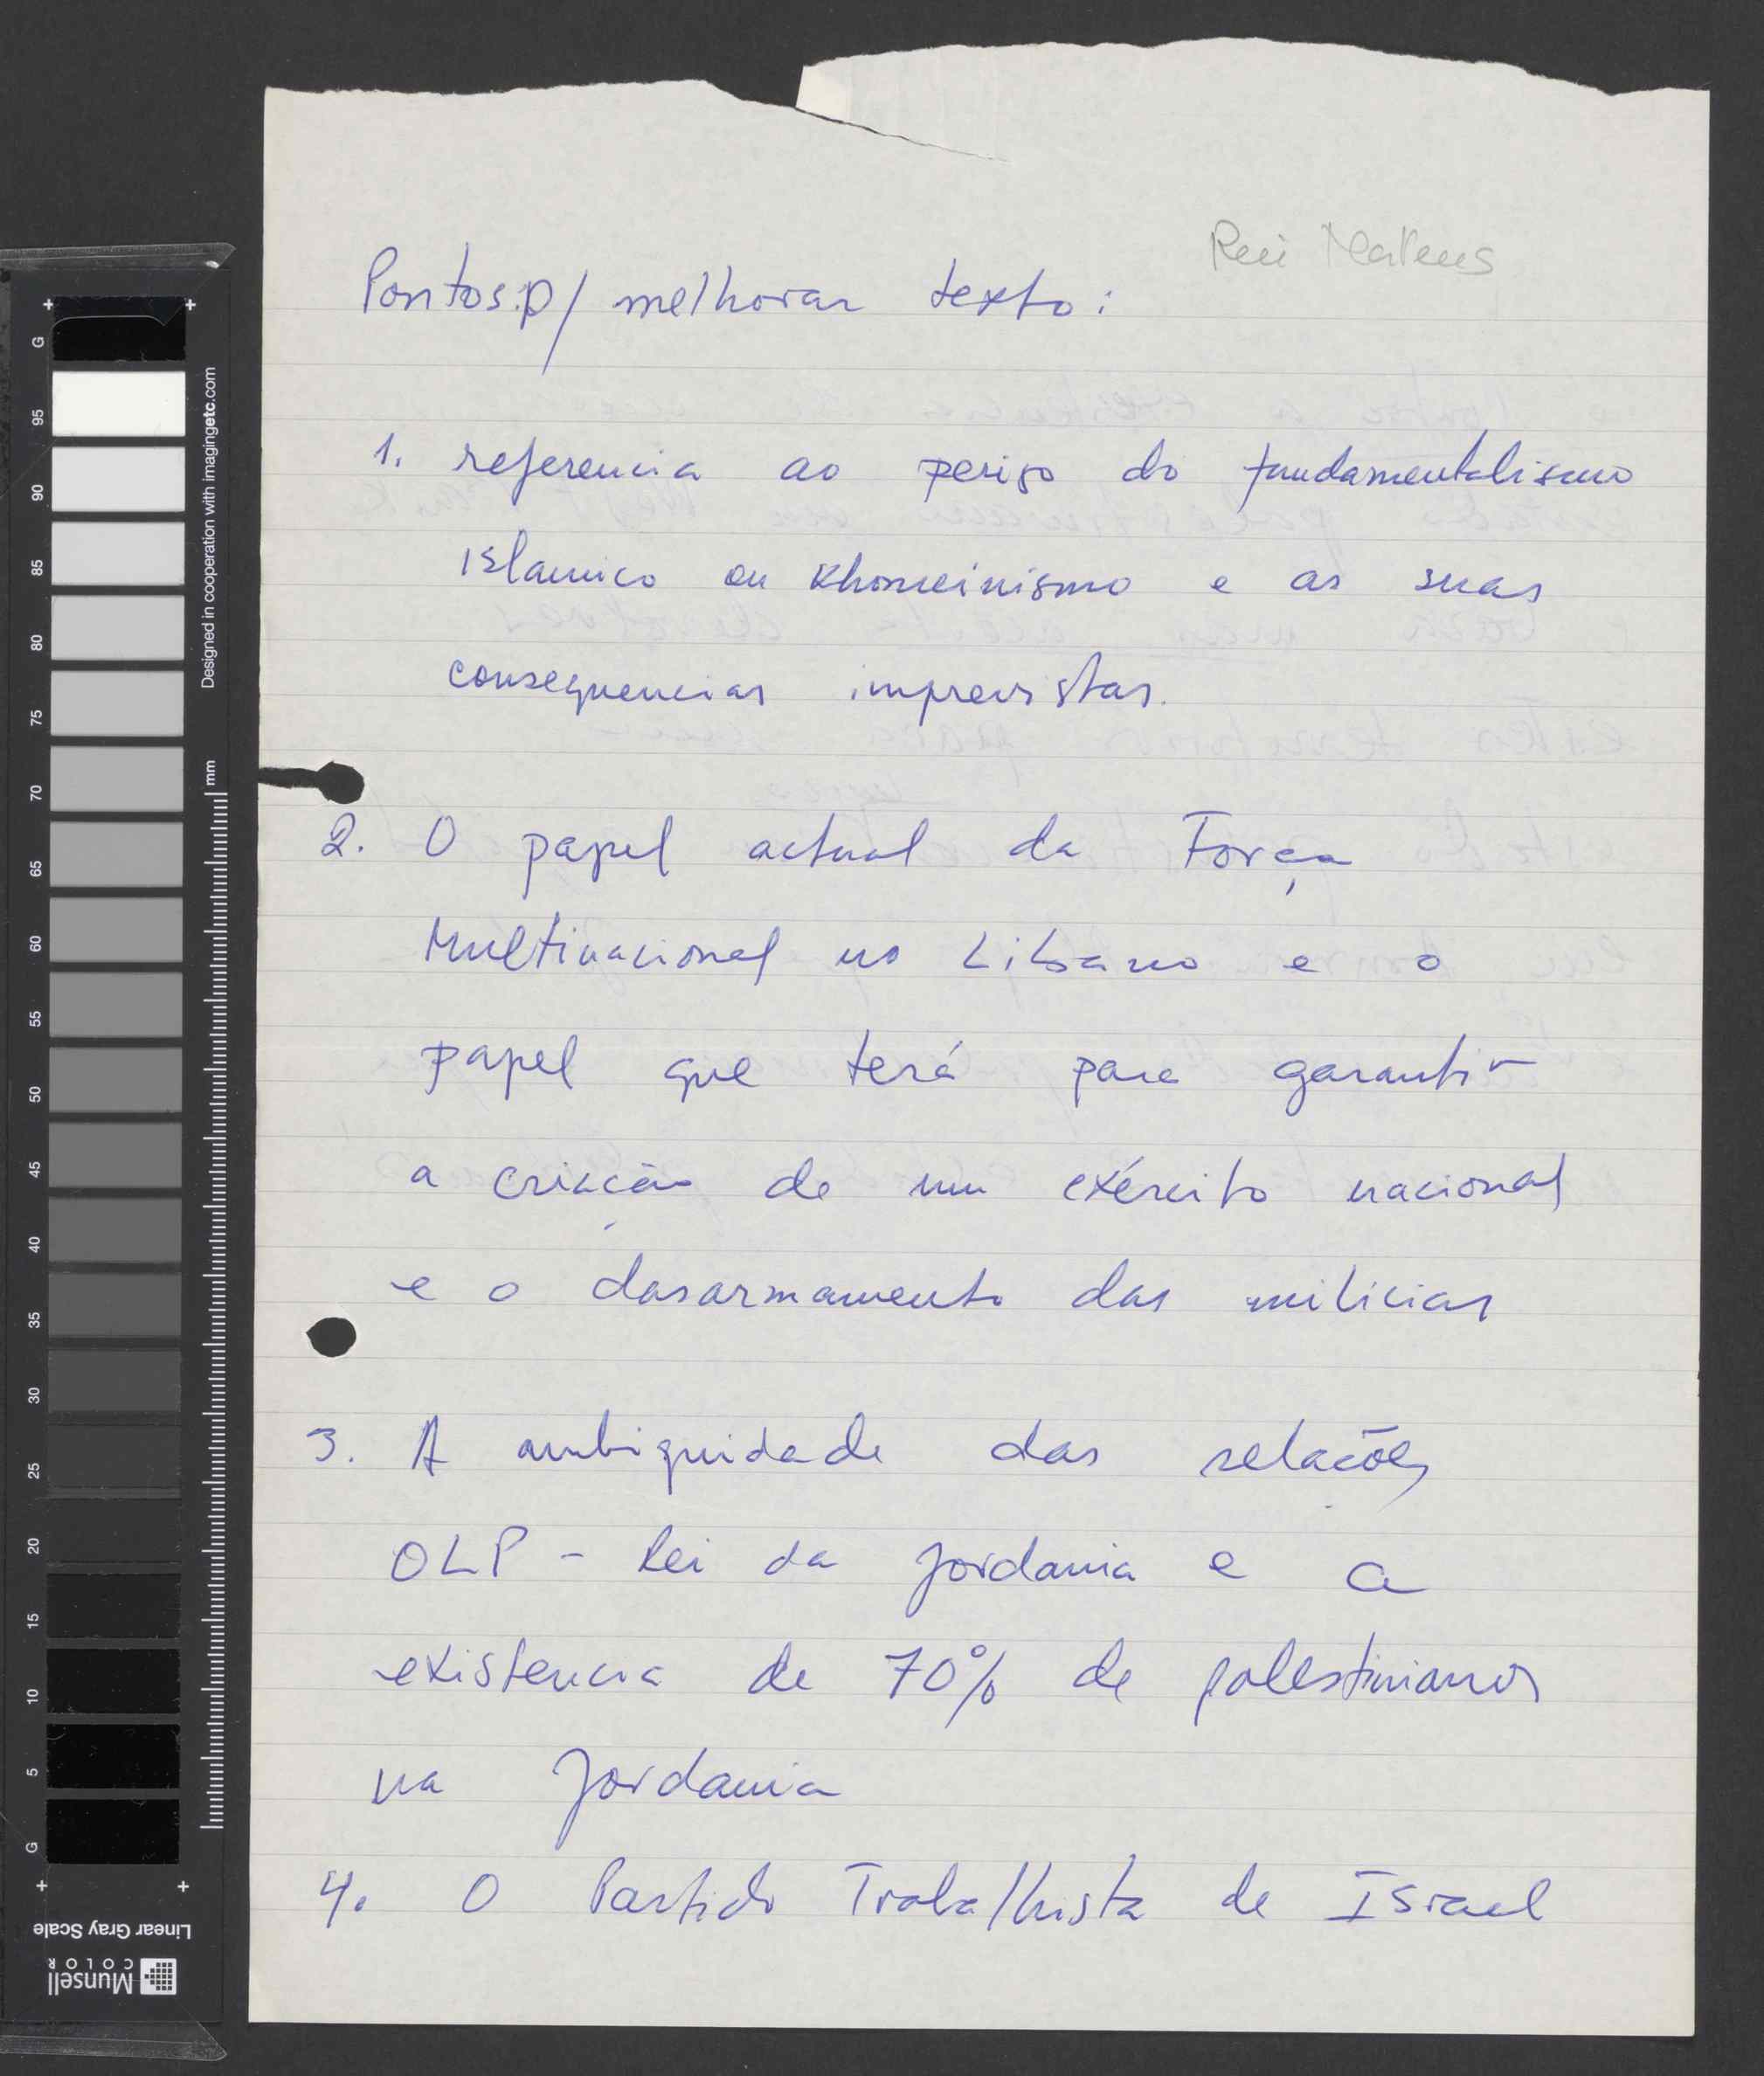 Rui Mateus
Pontos p/ melhorar texto:
1. referencia ao perigo do fundamentalismo
islamico ou Khomeinismo e as suas
consequencias imprevistas.
2. O papel actual da Força
Multinacional no Libano e o
papel que terá para garantir
a criação de um exército nacional
e o dasarmamento das milicias
3. A ambiguidade das relações
OLP - Rei da Jordania e a
existencia de 70% de palestinianos
na Jordania
4. O Partido Trabalhista de Israel
G 95 90 85 80 75 70 65 60 55 50 45 40 35 30 25 20 15 10 5 G
Designed in cooperation with imagingetc.com
mm
Linear Gray Scale
Munsell
COLOR